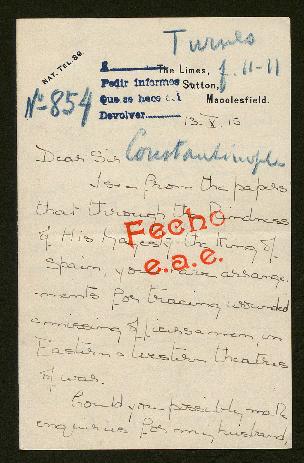 Turner
f. 11-11
NAT. TEL: 89.
The Limes,
Sutton,
Macclesfield.
Pedir informes
Que se hace
Devolver
Nº 854
13. X. 15
Dear Sir
Constantinople
I see from the papers
that through the kindness
of His Majesty the King of
Spain, you have arrange
ments for tracing wounded
& missing officers & men, in
Eastern & Western theatres
of war.
Fecho
e.a.e.
Could you possibly make
enquiries for my husband,